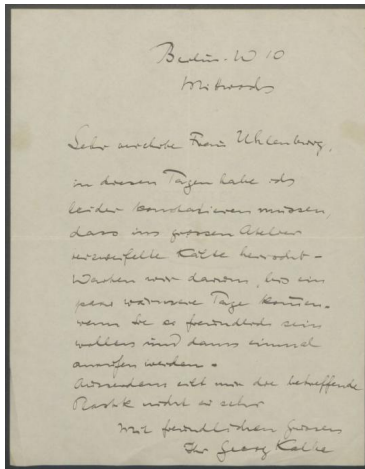 Berlin. W 10
Mittwoch
Sehr verehrte Frau Uhlenburg,
in diesen Tagen habe ich
leider konstatieren müssen,
dass im grossen Atelier
verzweifelte Kälte herrscht –
Warten wir darum, bis ein
paar wärmere Tage kommen.
wenn Sie so freundlich sein
wollen und dann einmal
anrufen werden.
Ausserdem eilt mir die betreffende
Plastik nicht so sehr
Mit freundlichen Grüssen
Ihr Georg Kolbe